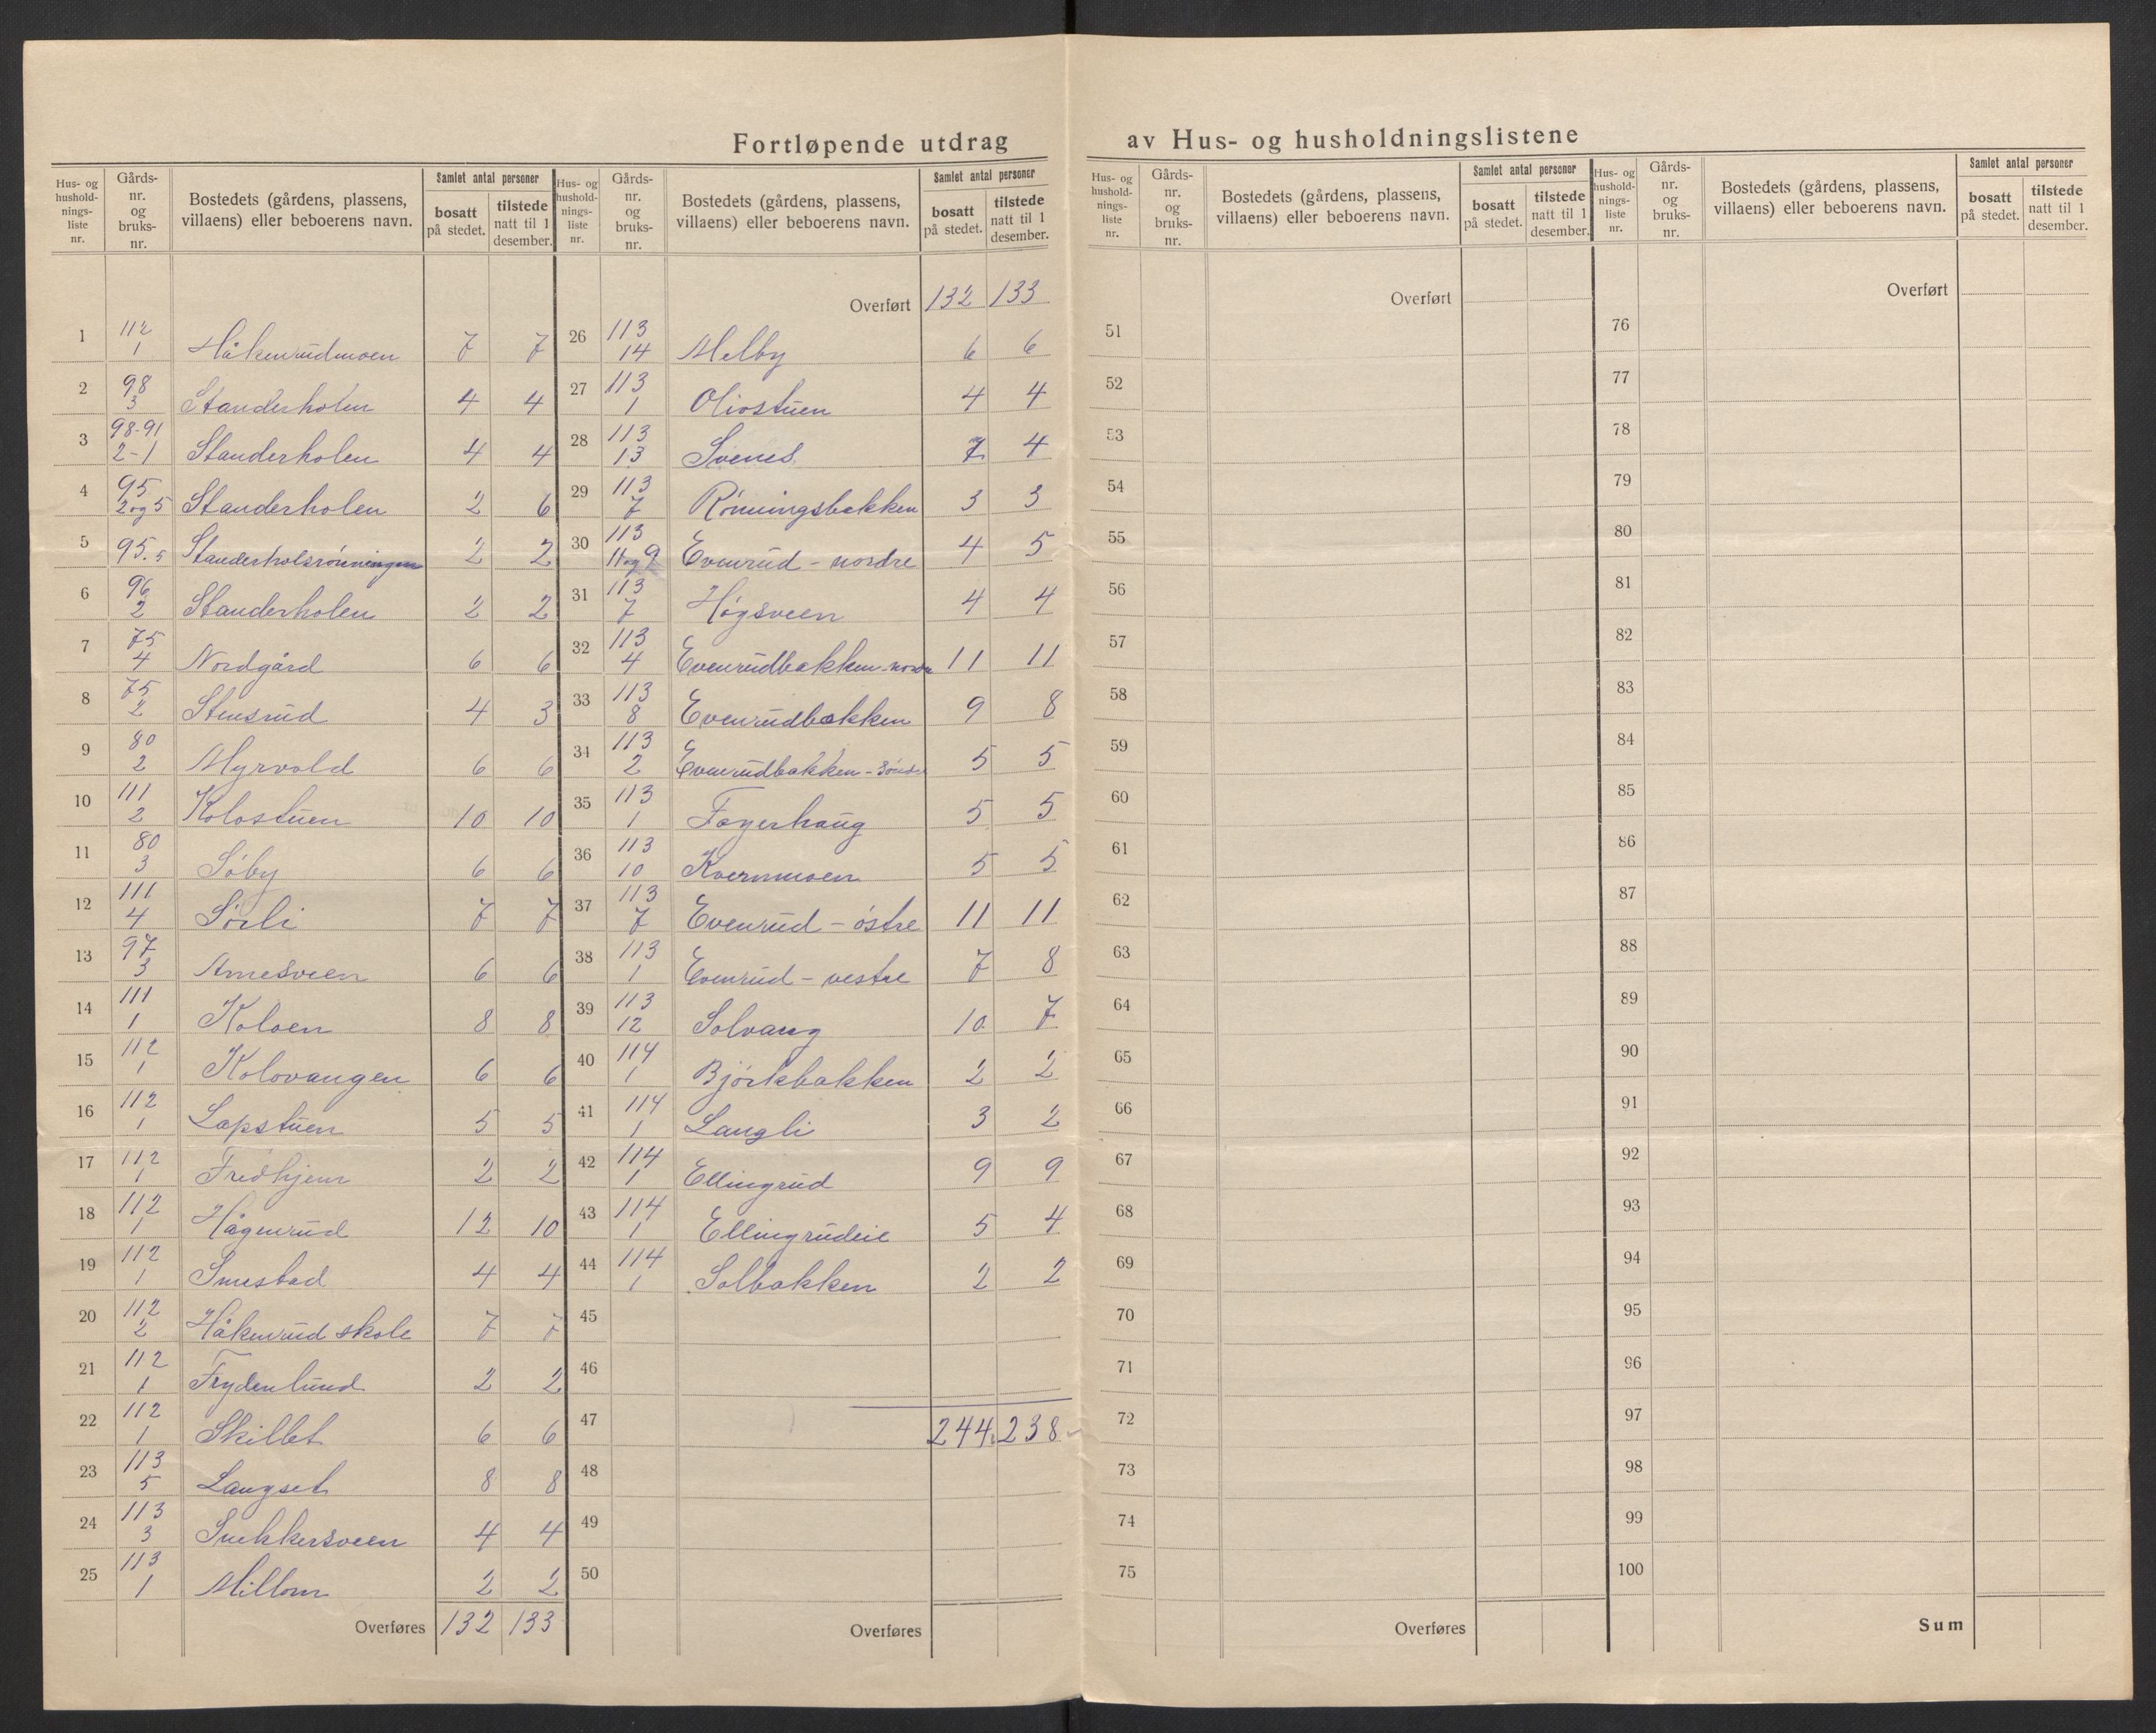 Fortløpende utdrag av Hus- og husholdningslistene
Hus- og hushold- nings- liste nr. | Gårds- nr. og bruks- nr. | Bostedets (gårdens, plassens, villaens) eller beboerens navn. | Samlet antal personer | bosatt på stedet. | tilstede natt til 1 desember.
1 112 1 Håkenrudmoen 7 7
2 98 3 Standerholen 4 4
3 98-91 2-1 Standerholen 4 4
4 95 2og5 Standerholen 2 6
5 95.5 Standerholsrønningen 2 2
6 96 2 Standerholen 2 2
7 75 4 Nordgård 6 6
8 75 2 Stensrud 4 3
9 80 2 Myrvold 6 6
10 111 2 Kolostuen 10 10
11 80 3 Søby 6 6
12 111 4 Sørli 7 7
13 97 3 Arnesveen 6 6
14 111 1 Koloen 8 8
15 112 1 Kolovangen 6 6
16 112 1 Lapstuen 5 5
17 112 1 Fredhjem 2 2
18 112 1 Hågenrud 12 10
19 112 1 Smestad 4 4
20 112 2 Håkenrud skole 7 7
21 112 1 Frydenlund 2 2
22 112 1 Skillet 6 6
23 113 5 Langset 8 8
24 113 3 Snekkersveen 4 4
25 113 1 Millom 2 2
Overføres 132 133
Hus- og hushold- nings- liste nr. | Gårds- nr. og bruks- nr. | Bostedets (gårdens, plassens, villaens) eller beboerens navn. | Samlet antal personer | bosatt på stedet. | tilstede natt til 1 desember.
Overført 132 133
26 113 14 Melby 6 6
27 113 1 Oliostuen 4 4
28 113 13 Svenes 7 4
29 113 7 Rønningsbakken 3 3
30 113 11og9 Evenrud - nordre 4 5
31 113 7 Høgsveen 4 4
32 113 4 Evenrudbakken-nordre 11 11
33 113 8 Evenrudbakken 9 8
34 113 2 Evenrudbakken - søndre 5 5
35 113 1 Fagerhaug 5 5
36 113 10 Kvernmoen 5 5
37 113 7 Evenrud - østre 11 11
38 113 1 Evenrud - vestre 7 8
39 113 12 Solvang 10 7
40 114 1 Bjørkbakken 2 2
41 114 1 Langli 3 2
42 114 1 Ellingrud 9 9
43 114 1 Ellingrudeie 5 4
44 114 1 Solbakken 2 2
45
46
47 244 238
48
49
50
Overføres
Hus- og hushold- nings- liste nr. | Gårds- nr. og bruks- nr. | Bostedets (gårdens, plassens, villaens) eller beboerens navn. | Samlet antal personer | bosatt på stedet. | tilstede natt til 1 desember.
Overført
51
52
53
54
55
56
57
58
59
60
61
62
63
64
65
66
67
68
69
70
71
72
73
74
75
Overføres
Hus- og hushold- nings- liste nr. | Gårds- nr. og bruks- nr. | Bostedets (gårdens, plassens, villaens) eller beboerens navn. | Samlet antal personer | bosatt på stedet. | tilstede natt til 1 desember.
Overført
76
77
78
79
80
81
82
83
84
85
86
87
88
89
90
91
92
93
94
95
96
97
98
99
100
Sum